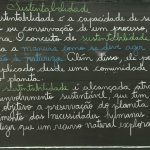 Sustentabilidade
ustentabilidade é a capacidade de su
ou conservação de um processo,
ma. O conceito de sustentabilidade
a a maneira como se deve agir
à natureza. Além disso, ele po
plicado desde uma comunidade
planeta.
sustentabilidade é alcançada atra
senvolvimento sustentável, ou sej
a preservação do planeta
mento das necessidades humanas.
dizer que um recurso natural explora